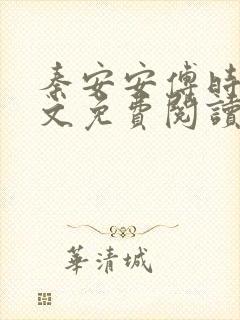 秦安安傅時
文免費閱讀
華清城